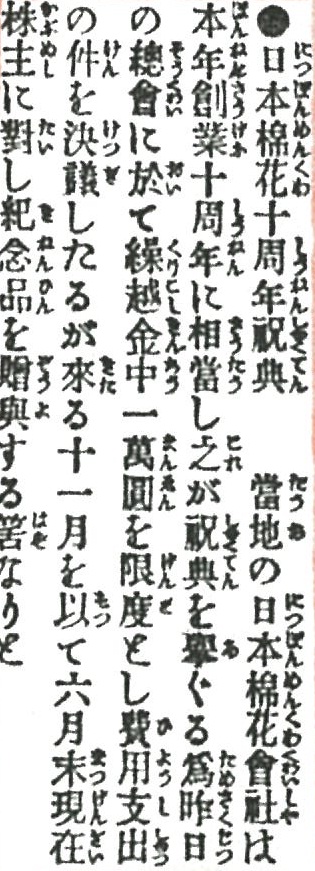 ●日本棉花十周年祝典　當地の日本棉花會社は
本年創業十周年に相當し之が祝典を擧ぐる爲昨日
の總會に於て繰越金中一萬圓を限度とし費用支出
の件を決議したるが來る十一月を以て六月末現在
株主に對し紀念品を贈與する筈なりと